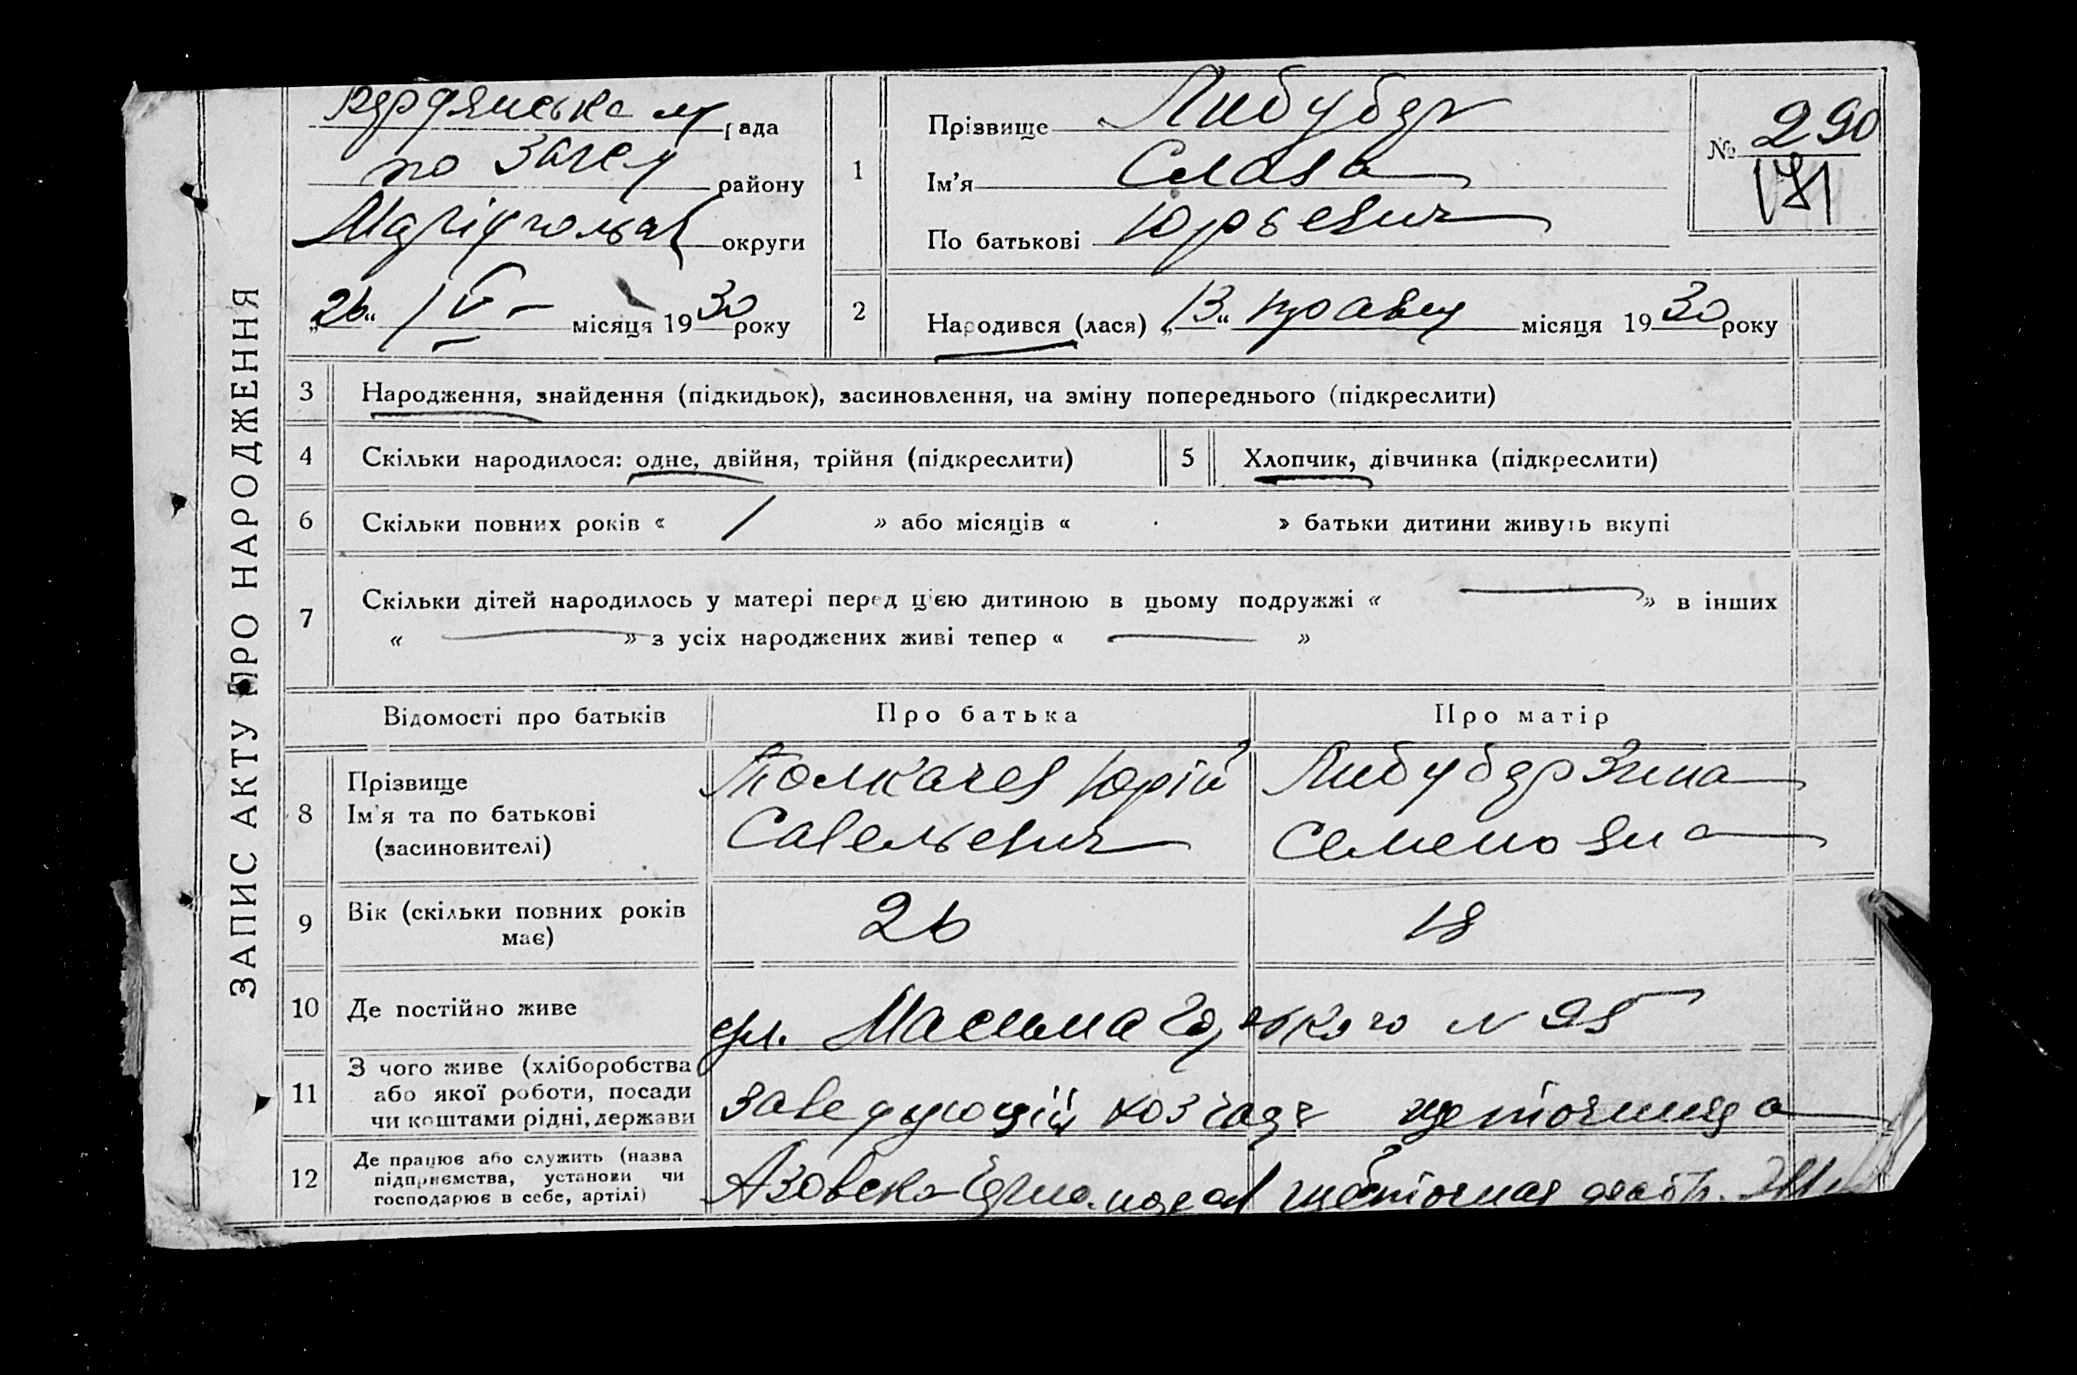 ЗАПИС АКТУ ПРО НАРОДЖЕННЯ
Бердянська м рада
району
Маріупольськ округи
„26“ IV - місяця 1930 року
1
Прізвище Либубер
Ім’я Слава
По батькові Юрьевич
№ 290
171
2
Народився (лася) „13“ травня місяця 1930 року
3 Народження, знайдення (підкидьок), засиновлення, на зміну попереднього (підкреслити)
4 Скільки народилося: одне, двійня, трійня (підкреслити)
5 Хлопчик, дівчинка (підкреслити)
6 Скільки повних років « / » або місяців « » батьки дитини живуть вкупі
7 Скільки дітей народилось у матері перед цією дитиною в цьому подружжі « — » в інших
« — » з усіх народжених живі тепер « — »
Відомості про батьків Про батька Про матір
8
Прізвище
Ім’я та по батькові
(засиновителі)
Толкачев Юрій
Савельевич
Либубер Зина
Семеновна
9
Вік (скільки повних років
має)
26 18
10 Де постійно живе
ул. Максима Горького N 95
11
З чого живе (хліборобства
або якої роботи, посади
чи коштами рідні, держави
заведующій щеточница
12
Де працює або служить (назва
підприємства, установи чи
господарює в себе, артілі)
Азовско щеточная